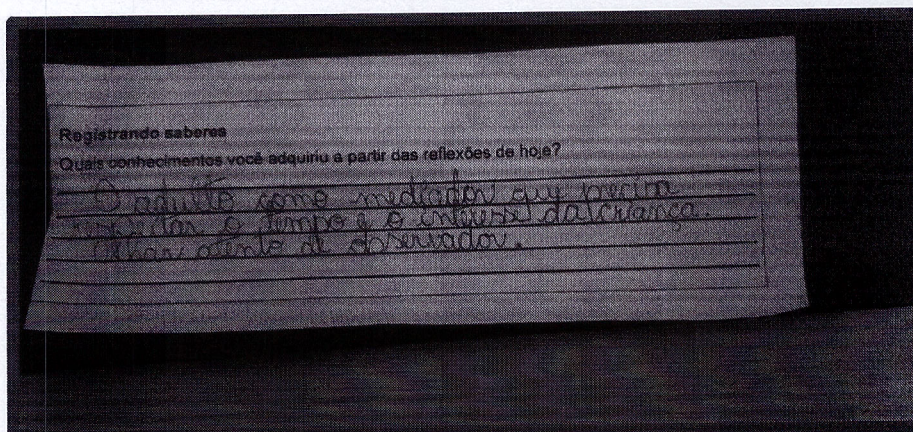 Registrando saberes
Quais conhecimentos você adquiriu a partir das reflexões de hoje?
O adulto como mediador que precisa
respeitar o tempo e o interesse da criança.
Olhar atento de observador.